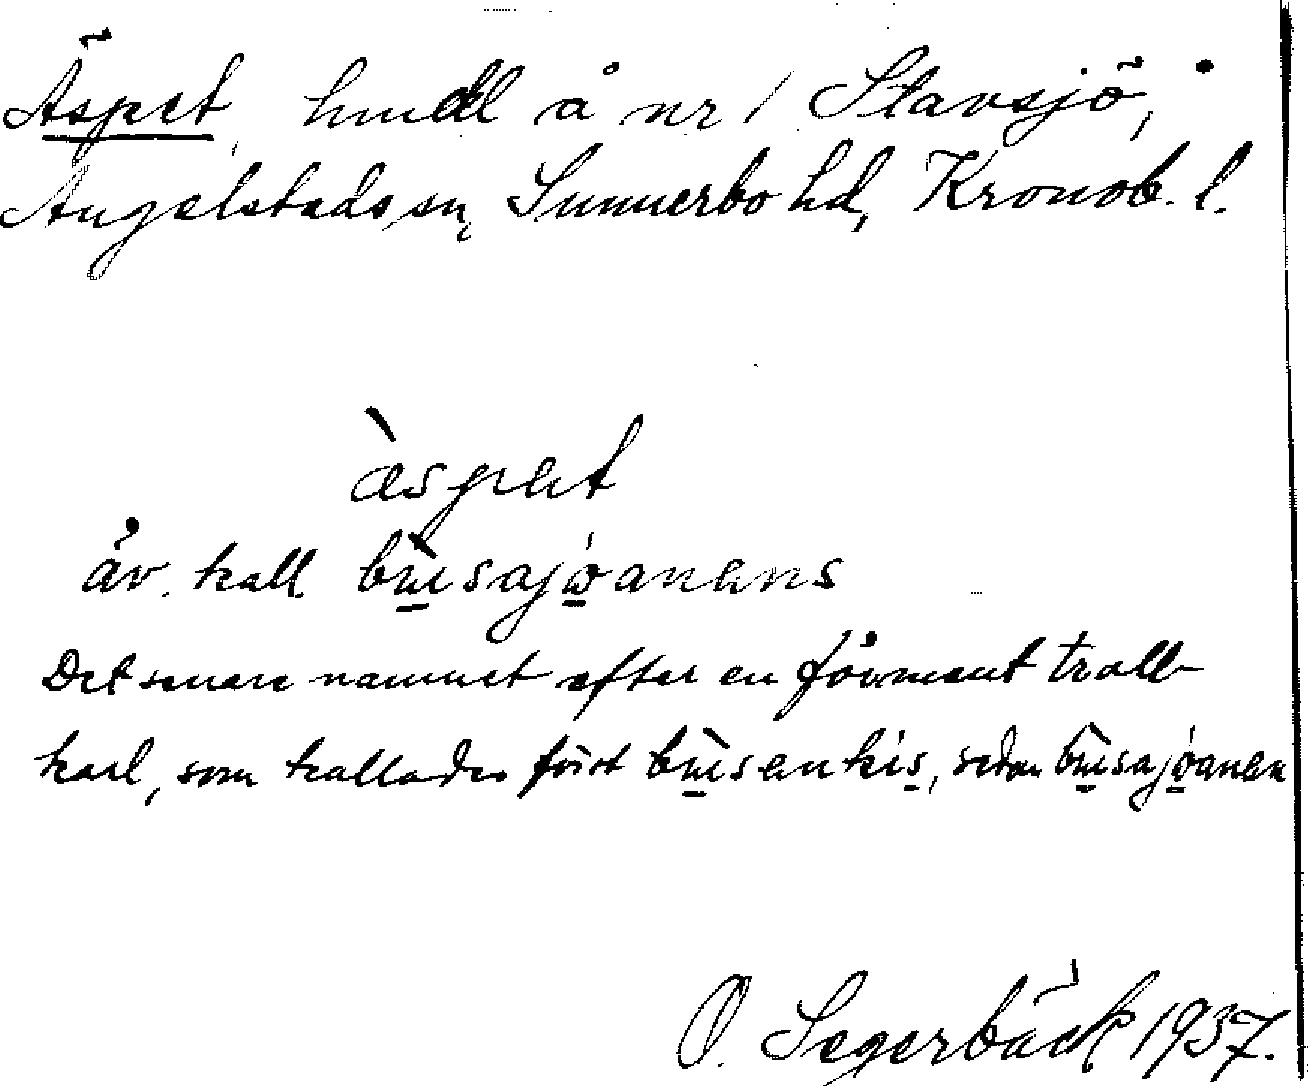 Äspet, hmdl å nr 1 Stavsjö,
Angelstads sn, Sunnerbo hd, Kronob. l.
àspet
äv. kall. bùsajoanens
Det senare namnet efter en förment troll-
karl, som kallades först bùsenkis, sedan bùsajoanen
O. Segerbäck 1937.